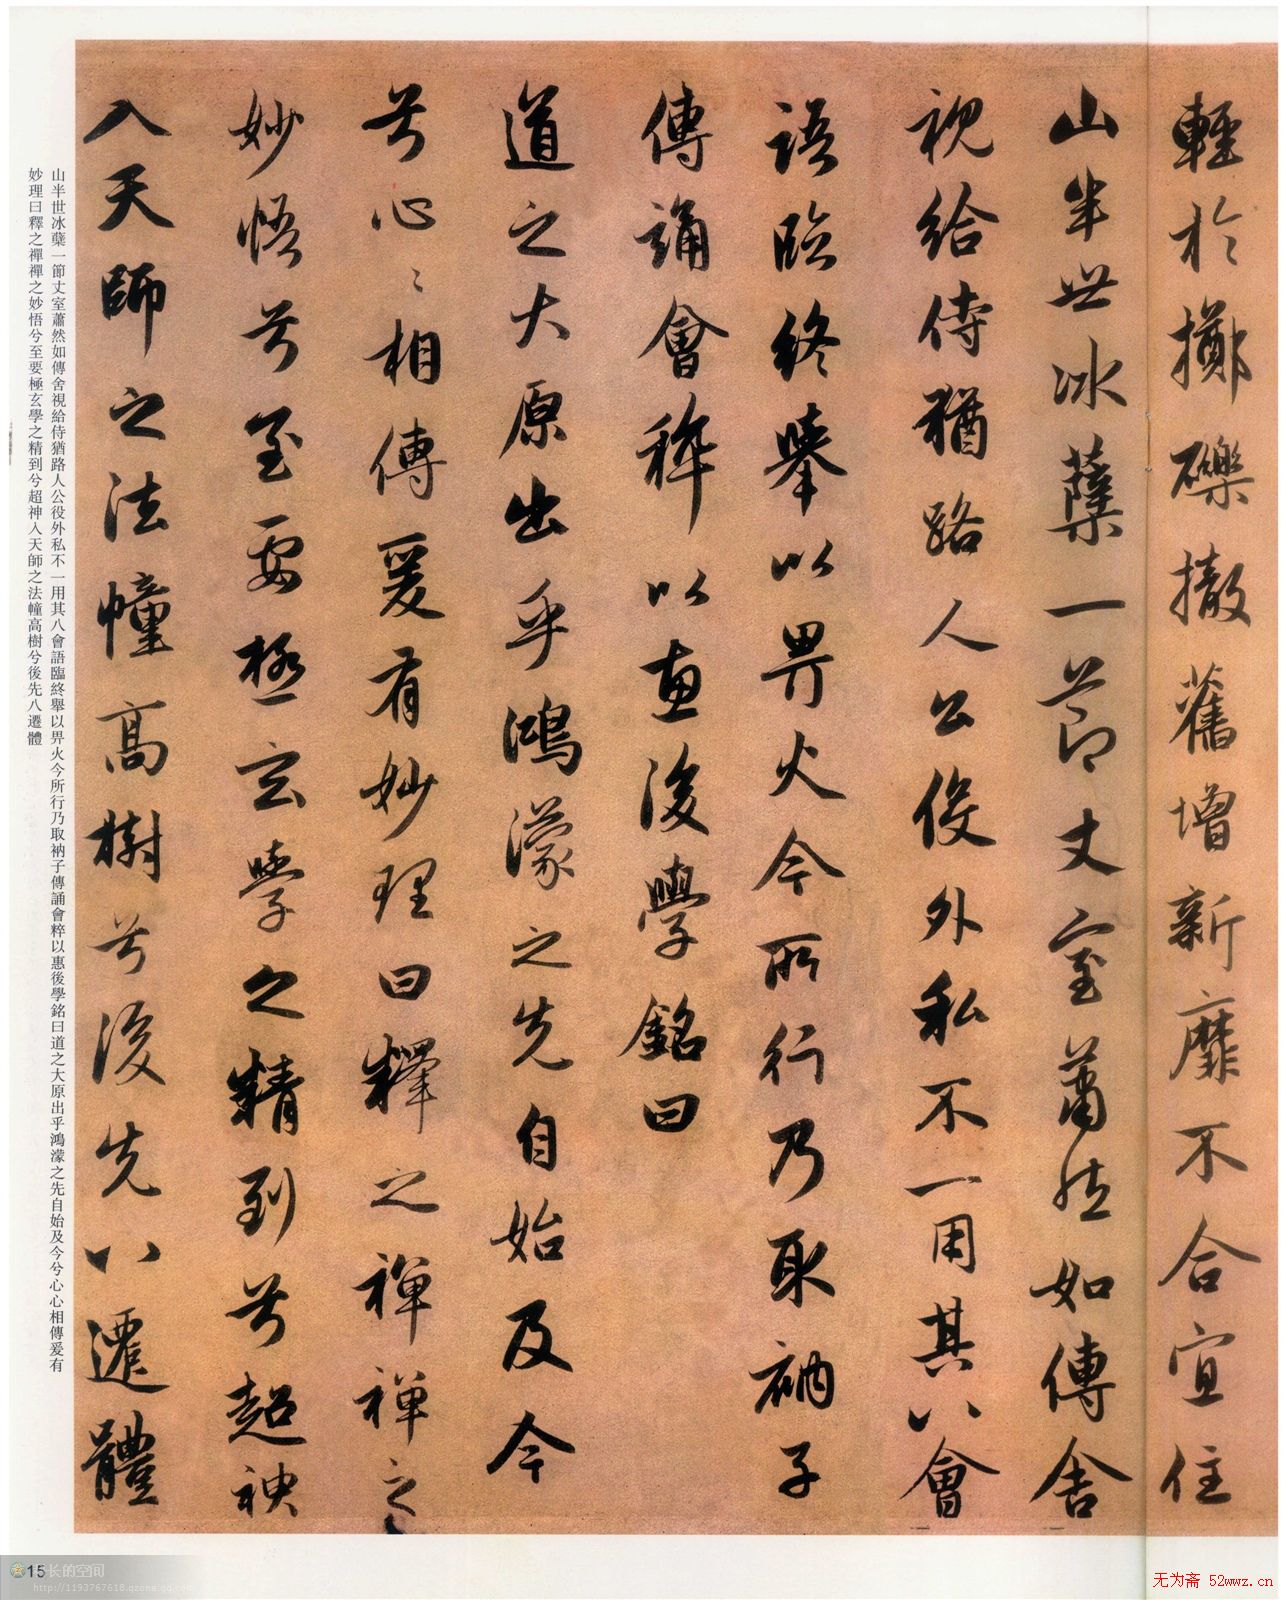 輕於擲礫撤舊增新靡不合宜住
山半世冰蘗一節丈室蕭然如傳舍
視給侍猶路人公役外私不一用其八會
語臨終舉以畀火今所行乃取衲子
傳誦會稡以惠後學銘曰
道之大原出乎鴻濛之先自始及今
兮心〻相傳爰有妙理曰釋之禪禪之
妙悟兮至要極玄學之精到兮超神
入天師之法幢高樹兮後先八遷體
山半世冰蘗一節丈室蕭然如傳舍視給侍猶路人公役外私不一用其八會語臨終舉以畀火今所行乃取衲子傳誦會粹以惠後學銘曰道之大原出乎鴻濛之先自始及今兮心心相傳爰有
妙理曰釋之禪禪之妙悟兮至要極玄學之精到兮超神入天師之法幢高樹兮後先八遷體
15
长的空间
http://1193767618.qzone.qq.com
无为斋 52wwz.cn